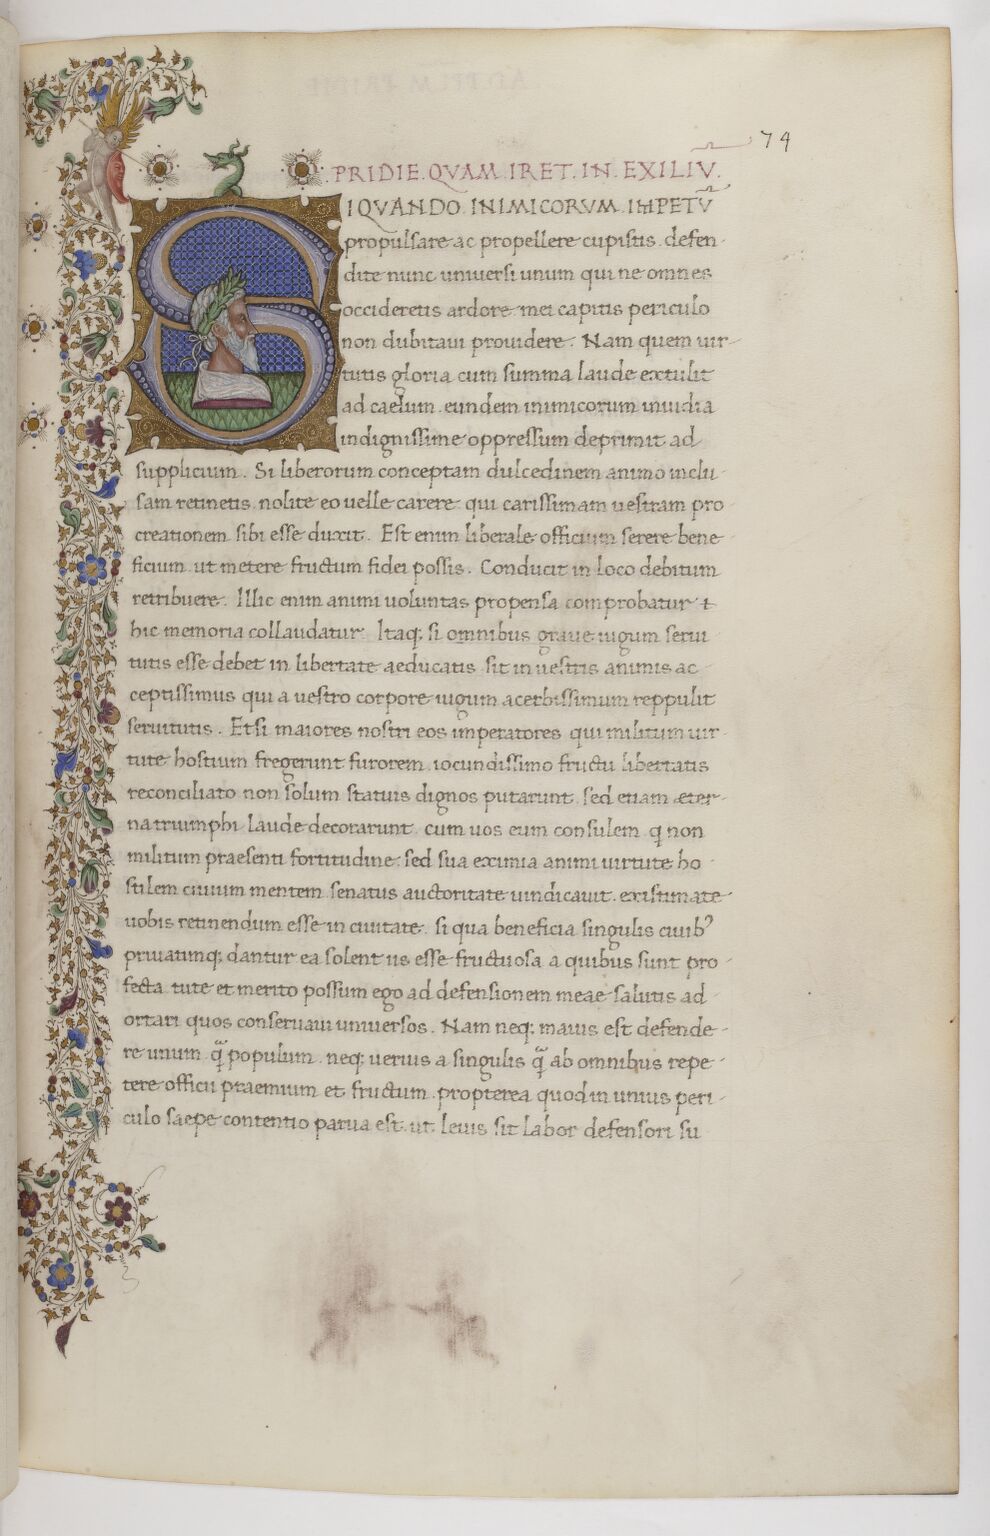 74
PRIDIE. QVAM. IRET. IN. EXILIV̄.
SIQVANDO. INIMICORVM. IMPETV̄
propulsare ac propellere cupistis. defen-
dite nunc uniuersi unum qui ne omnes
occideretis ardore mei capitis periculo
non dubitaui prouidere. Nam quem uir-
tutis gloria cum summa laude extulit
ad caelum. eundem inimicorum inuidia
indignissime oppressum deprimit ad
supplicium. Si liberorum conceptam dulcedinem animo inclu-
sam retinetis. nolite eo uelle carere. qui carissimam uestram pro-
creationem sibi esse duxit. Est enim liberale officium serere bene-
ficium. ut metere fructum fidei possis. Conducit in loco debitum
retribuere. Illic enim animi uoluntas propensa comprobatur &
hic memoria collaudatur. Itaq; si omnibus graue iugum serui
tutis esse debet in libertate aeducatis. sit in uestris animis ac-
ceptissimus qui a uestro corpore iugum acerbissimum reppulit
seruitutis. Etsi maiores nostri eos imperatores qui militum uir-
tute hostium fregerunt furorem. iocundissimo fructu libertatis
reconciliato non solum statuis dignos putarunt. sed etiam æter-
na triumphi laude decorarunt. cum uos eum consulem. q̄ non
militum praesenti fortitudine sed sua eximia animi uirtute ho-
stilem ciuium mentem senatus auctoritate uindicauit. existimate
uobis retinendum esse in ciuitate. si qua beneficia singulis ciuibꝰ
priuatimq; dantur ea solent iis esse fructuosa a quibus sunt pro-
fecta. iure et merito possum ego ad defensionem meae salutis ad-
ortari quos conseruaui uniuersos. Nam neq; maius est defende-
re unum q̄ populum. neq; uerius a singulis q̄ ab omnibus repe-
tere officii praemium et fructum. propterea quod in unius peri-
culo saepe contentio parua est. ut leuis sit labor defensori su